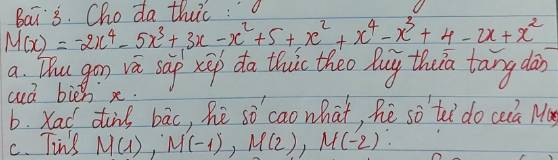 Bài 3. Cho đa thức :
M(x) = -2x⁴ - 5x³ + 3x - x² + 5 + x² + x⁴ - x³ + 4 - 2x + x²
a. Thu gọn và sắp xếp đa thức theo lũy thừa tăng dần
của biến x.
b. Xác định bậc, hệ số cao nhất, hệ số tự do của M(x)
c. Tính M(1), M(-1), M(2), M(-2).